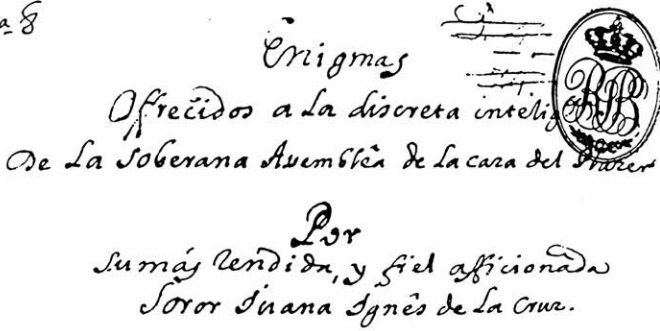 Enigmas
Ofrecidos a la discreta intelig
De la soberana Asemblêa de la casa del Plazer
Por
su más rendida, y fiel afficionada
Soror Juana Ignês de la Cruz.